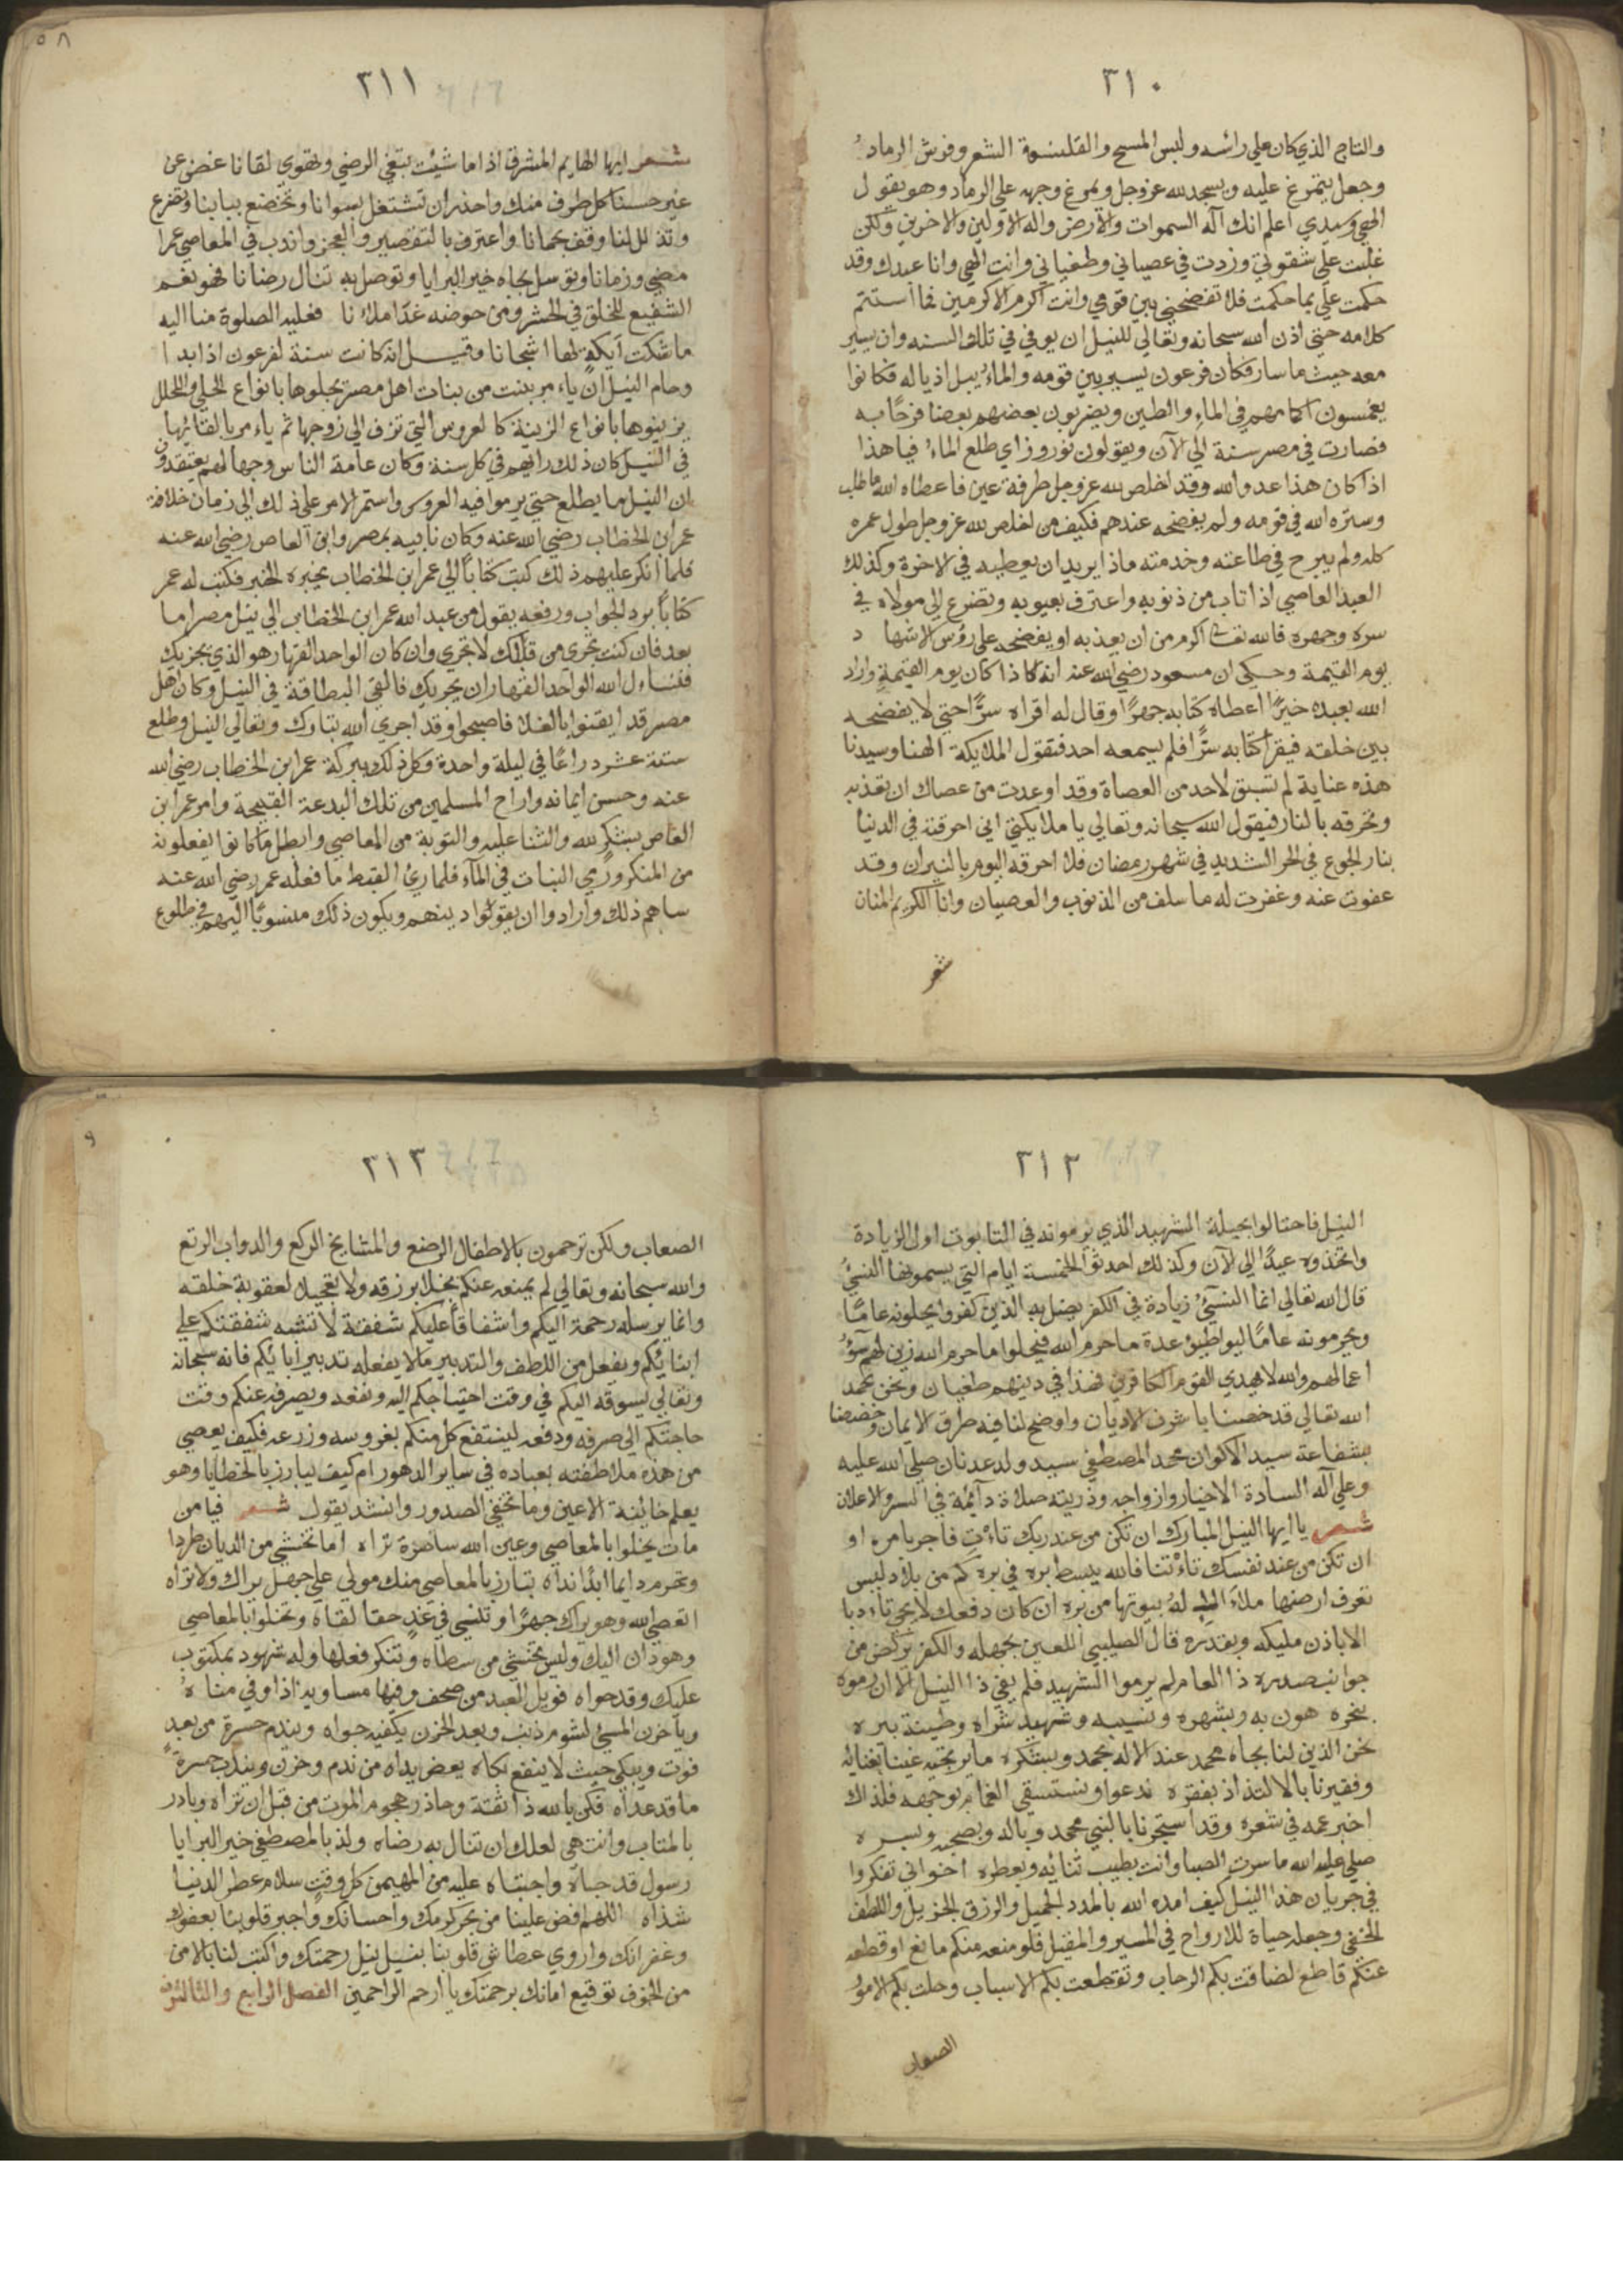 ٣١٠
والتاج الذي كان علي رائسه ولبس المسح والقلنسوة الشعر وفرش الرماد
وجعل يتمرغ عليه ويسجد لله عز وجل ويمرغ وجهه علي الرماد وهو يقول
الهي وسيدي اعلم انك آله السموات والارض واله الاولين والاخرين ولكن
غلبت علي شقوتي وزدت في عصياني وطغياني وانت الهي وانا عبدك وقد
حكمت علي بما حكمت فلا تفضحني بين قومي وانت اكرم الاكرمين فما استتم
كلامه حتي اذن الله سبحانه وتعالي للنيل ان يوفي في تلك السنه وان يسير
معه حيث ما سار فكان فرعون يسير بين قومه والماء يبل اذياله فكانوا
يغمسون اكمامهم في الماء والطين ويضربون بعضهم بعضا فرحًا به
فصارت في مصر سنة الي الآن ويقولون نوروز اي طلع الماء فيا هذا
اذا كان هذا عدو الله وقد اخلص لله عز وجل طرفة عين فاعطاه الله ما طلب
وستره الله في قومه ولم يفضحه عندهم فكيف من اخلص لله عز وجل طول عمره
كله ولم يبرح في طاعته وخدمته ماذا يريد ان يعطيه في الاخرة وكذلك
العبد العاصي اذا تاب من ذنوبه واعترف بعيوبه وتضرع الي مولاه في
سره وجهره فالله تعالى اكرم من ان يعذبه او يفضحه علي رؤس الاشهاد
يوم القيمة وحكي ان مسعود رضي الله عنه انه كاذا كان يوم القيمة واراد
الله بعبده خيرًا اعطاه كتابه جهرًا وقال له اقراه سرًا حتي لا يفضحه
بين خلقه فيقرأ كتابه سرًا فلم يسمعه احد فتقول الملايكة الهنا وسيدنا
هذه عناية لم تسبق لاحد من العصاة وقد اوعدت من عصاك ان تعذبه
وتحرقه بالنار فيقول الله سبحانه وتعالي يا ملايكتي اني احرقته في الدنيا
بنار الجوع في الحر الشديد في شهر رمضان فلا احرقه اليوم بالنيران وقد
عفوت عنه وغفرت له ما سلف من الذنوب والعصيان وانا الكريم المنان
شعر
٥٨
٣١١
شعر ايها الهايم المشرق اذاما شئت تبتغي الرضي وتقوي لقانا غض عن
غير حسنا كل طرف منك واحذر ان تشتغل بسوانا وتخضع ببابنا وتضرع
وتذلل لنا وقف بحمانا واعترف بالتقصير والعجز واندب في المعاصي عمرا
مضي وزمانا وتوسل بجاه خير البرايا وتوصل به تنال رضانا فهو نعم
الشفيع للخلق في الحشر ومن حوضه غدًا ملانا فعليه الصلوة منا اليه
ما شكت ايكة لها اشجانا وقيل انه كانت سنة لفرعون اذا بدا
وحام النيل ان يامر ببنت من بنات اهل مصر يجلوها بانواع الحلي والحلل
يزينوها بانواع الزينة كالعروس التي تزف الي زوجها ثم ياءمر بالقائها
في النيل كان ذلك رايهم في كل سنة وكان عامة الناس وجهالهم يعتقدون
ان النيل ما يطلع حتي يرموا فيه العروس واستمر الامر علي ذلك الي زمان خلافة
عمر ابن الخطاب رضي الله عنه وكان نايبه بمصر وابن العاص رضي الله عنه
فلما انكر عليهم ذلك كتب كتابًا الي عمر ابن الخطاب يخبره الخبر فكتب له عمر
كتابًا برد الجواب ورفعه يقول من عبد الله عمر ابن الخطاب الي نيل مصر اما
بعد فان كنت تجري من قبلك لا تجري وان كان الواحد القهار هو الذي يجريك
فنساءل الله الواحد القهار ان يجريك فالقي البطاقة في النيل وكان اهل
مصر قد ايقنوا بالغلا فاصبحوا وقد اجري الله تبارك وتعالي النيل وطلع
ستة عشر دراعًا في ليلة واحدة وكل ذلك ببركة عمر ابن الخطاب رضي الله
عنه وحسن ايمانه واراح المسلمين من تلك البدعة القبيحة وامر عمر ابن
العاص بشكر لله والثنا عليه والتوبة من المعاصي وابطل ما كانوا يفعلونه
من المنكر ورمي البنات في المآء فلما رئ القبط ما فعله عمر رضي الله عنه
ساهم ذلك وارادوا ان يقولوا دينهم ويكون ذلك منسوبًا اليهم في طلوع
٣١٢
النيل فاحتالوا بحيلة الشهيد الذي يرمونه في التابوت اول الزيادة
واتخذوه عيدًا الي الآن وكذلك احدثوا الخمسة ايام التي يسمونها النسئ
قال الله تعالي انما النسئ زيادة في الكفر يضل به الذين كفروا يحلونه عامًا
ويحرمونه عامًا ليواطئوا عدة ما حرم الله فيحلوا ما حرم الله زين لهم سؤ
اعمالهم والله لا يهدي القوم الكافرين فهذا في دينهم طغيان ونحن بحمد
الله تعالي قد خصنا باشرف الاديان واوضح لنا فيه طرق الايمان وخصنا
بشفاعة سيد الاكوان محمد المصطفي سيد ولد عدنان صلي الله عليه
وعلي آله السادة الاخيار وازواجه وذريته صلاة دآئمة في السر والاعلان
شعر يا ايها النيل المبارك ان تكن من عند ربك تاءت فاجر بامره او
ان تكن من عند نفسك تاءتنا فالله يبسط بره في بره كم من بلاد ليس
تعرف ارضها ملاء الاله بيوتها من بره ان كان دفعك لا يجي تاءدبا
الا باذن مليكه وبقدره قال الصليبي اللعين بجهله والكفر يركض من
جوانب صدره ذا العام لم يرموا الشهيد فلم يفي ذا النيل الا ان رموه
بنحره هون به وبشهره ونسيبه وشهيد شراه وطينة بيره
نحن الذين لنا بجاه محمد عند الاله بحمد وبشكره ما يرتجيه غنينا بغنائه
وفقيرنا بالالتذاذ بفقره ندعوا ونستسقي الغمام بوجهه فلذاك
اخبر عمه في شعره وقد استجرنا بالنبي محمد وباله وبصحبه وبسره
صلي عليه الله ما سرت الصبا وانت بطيب ثنائه وبعطره اخواني تفكروا
في جريان هذا النيل كيف امده الله بالمدد الجميل والرزق الجزيل واللطف
الخفي وجعله حياة للارواح في المسير والمقيل فلو منعه منكم مانع او قطعه
عنكم قاطع لضاقت بكم الرحاب وتقطعت بكم الاسباب وحلت بكم الامور
الصعاب
٩
٣١٣
الصعاب ولكن ترحمون بالاطفال الرضع والمشايخ الركع والدواب الرتع
والله سبحانه وتعالي لم يمنعه عنكم بخلا برزقه ولا تعجيلا لعقوبة خلقه
وانما يرسله رحمة اليكم واشفاقا عليكم شفقة لا تشبه شفقتكم علي
ابنائكم ويفعل من اللطف والتدبير ما لا يفعله تدبير آبائكم فانه سبحانه
وتعالي يسوقه اليكم في وقت احتياجكم اليه ونفعه ويصرفه عنكم وقت
حاجتكم الي صرفه ودفعه لينتفع كل منكم بغروسه وزرعه فكيف يعصي
من هذه ملاطفته بعباده في ساير الدهور ام كيف يبارز بالخطايا وهو
يعلم خائنة الاعين وما تخفي الصدور وانشد يقول شعر فيا من
مات يخلوا بالمعاصي وعين الله ساهرة تراه اما تخشي من الديان طردا
وتحرم دايما ابدًا نداه تبارز بالمعاصي منك مولي علي جهل يراك ولا تراه
اتعصي الله وهو يراك جهرًا وتنسي في غد حقا لقاه وتخلوا بالمعاصي
وهو دان اليك وليس تختشي من سطاه وتنكر فعلها وله شهود بمكتوب
عليك وقد حواه فويل العبد من صحف وفيها مساويه اذا وفي مناه
ويا حزن المسئ لشوم ذنب وبعد الحزن يكفيه جواه ويندم حسرة من بعد
فوت ويبكي حيث لا ينفع بكاه يعض يداه من ندم وحزن ويندب حسرة
ما قد عداه فكن بالله ذا ثقة وحاذر هجوم الموت من قبل ان تراه وبادر
بالمتاب وانت حي لعلك ان تنال به رضاه ولذ بالمصطفي خير البرايا
رسول قد حباه واجتباه عليه من المهيمن كل وقت سلام عطر الدنيا
شذاه اللهم افض علينا من بحر كرمك واحسانك واجبر قلوبنا بعفوك
وغفرانك واروي عطاش قلوبنا بنيل نيل رحمتك واكتب لنا بالامن
من الخوف توقيع امانك برحمتك يا ارحم الراحمين الفصل الرابع والثالثون